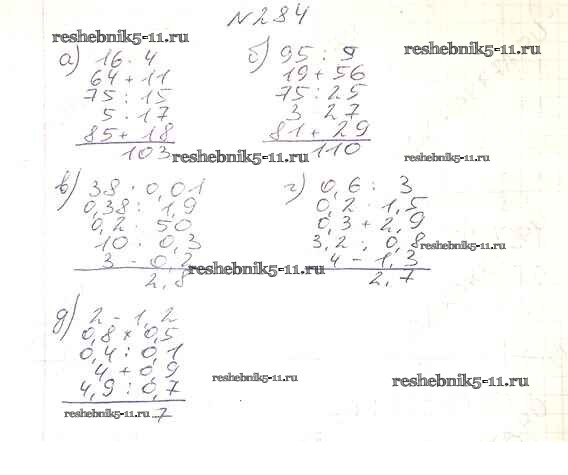 № 284
reshebnik5-11.ru
reshebnik5-11.ru
а) 16 · 4
64 + 11
75 : 15
5 · 17
85 + 18
103
б) 95 : 9
19 + 56
75 : 25
3 27
81 + 29
110
reshebnik5-11.ru
reshebnik5-11.ru
в) 38 · 0,01
0,38 : 1,9
0,2 · 50
10 · 0,3
3 - 0,2
2,8
г) 0,6 : 3
0,2 · 1,5
0,3 + 2,9
3,2 : 0,8
4 - 1,3
2,7
reshebnik5-11.ru
reshebnik5-11.ru
д) 2 - 1,2
0,8 × 0,5
0,4 : 0,1
4 + 0,9
4,9 : 0,7
7
reshebnik5-11.ru
reshebnik5-11.ru
reshebnik5-11.ru